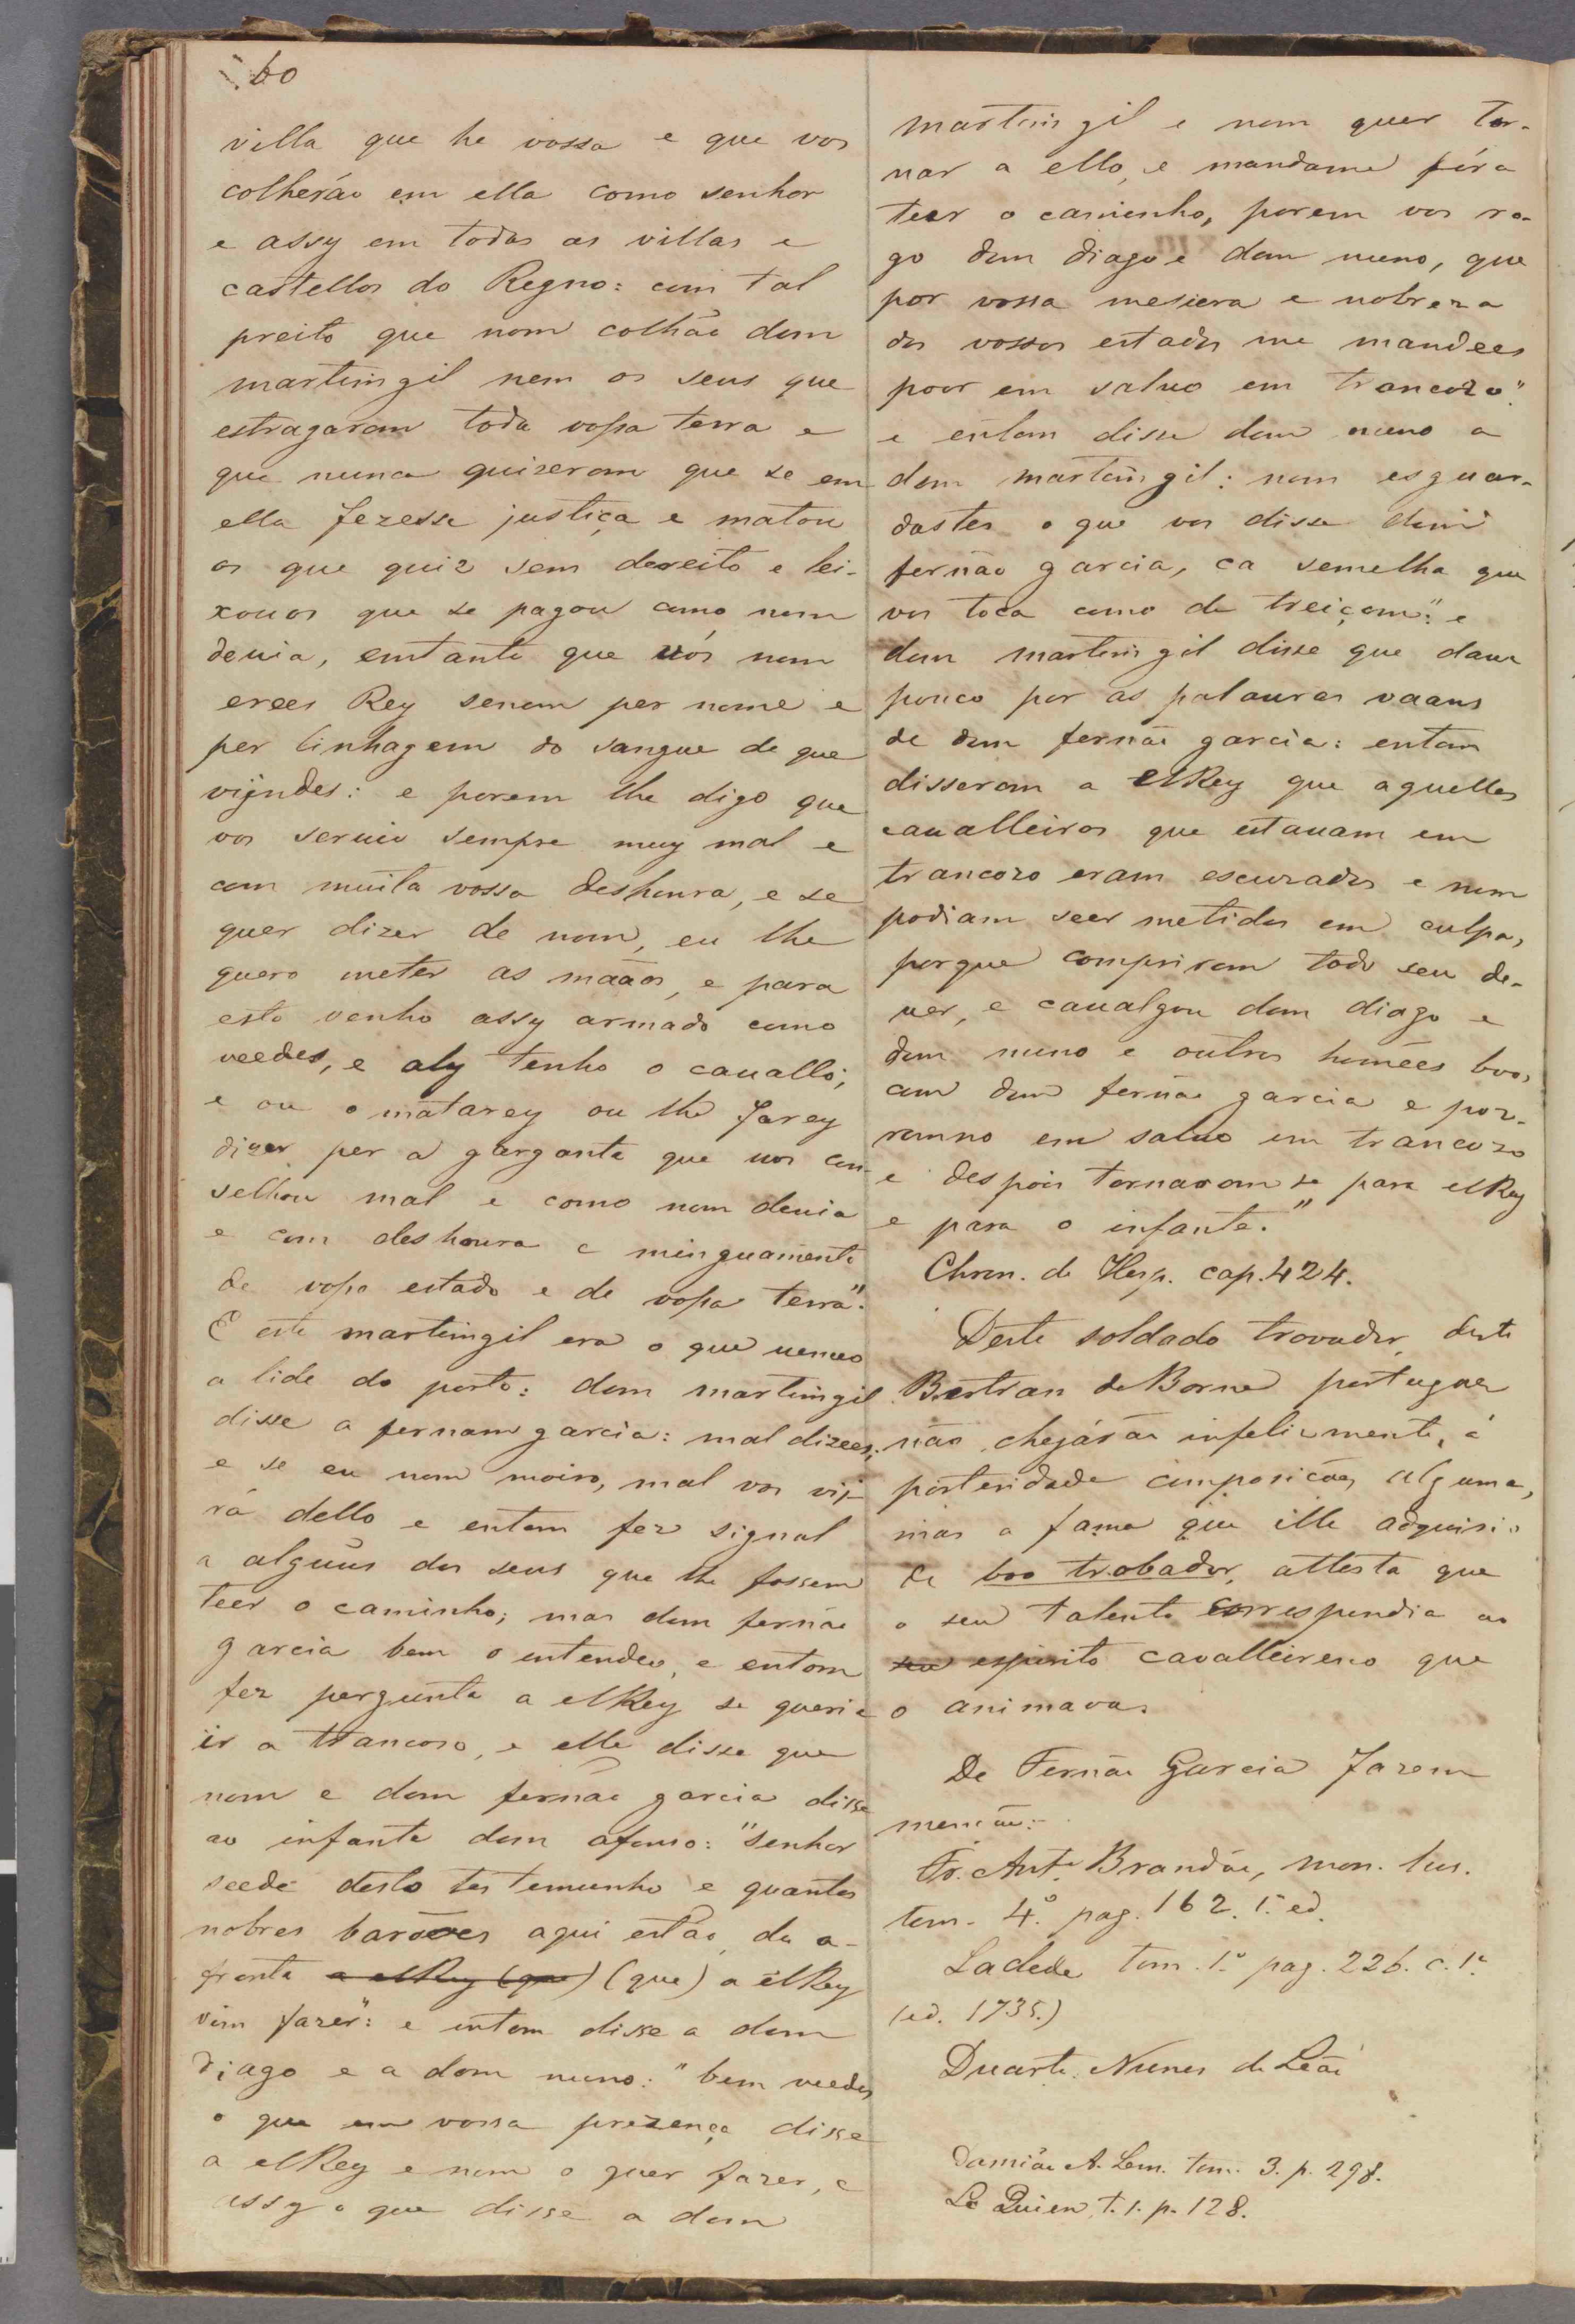 60
villa que he vossa e que vos
colherão em ella como senhor
e assy em todas as villas e
castellos do Regno: com tal
preito que nom colhão dom
martimgil nem os seus que
estragaram toda vossa terra e
que nunca quizeram que se em
ella fezesse justiça e matou
os que quiz sem dereito e lei-
xouos que se pagou como nom
deuia, emtanto que uós nom
erees Rey senom per nome e
per linhagem do sangue de que
vijndes: e porem lhe digo que
vos seruio sempre muy mal e
com muita vossa deshonra, e se
quer dizer de nom, eu lhe
quero meter as mããos, e para
esto venho assy armado como
veedes, e aly tenho o cauallo;
e ou o matarey ou lhe farey
dizer per a garganta que uos con-
selhou mal e como nom deuia
e com deshonra e minguamento
de vosso estado e de vossa terra".
E este martimgil era o que venceo
a lide do porto: dom martimgil
disse a fernam garcia: mal dizees;
e se eu nom moiro, mal vos vij-
rá dello e entom fez signal
a algũus dos seus que lhe fossem
teer o caminho; mas dom fernão
garcia bem o entendeo, e entom
fez pergunta a elRey se queria
ir a trancoso, e elle disse que
nom e dom fernão garcia disse
ao infante dom afonso: "senhor
seede desto testemunho e quantos
nobres barões aqui estão, da a-
fronta a elRey (que) (que) a elRey
vim fazer": e entom disse a dom
diago e a dom nuno: "bem veedes
o que em vossa prezença disse
a elRey e nom o quer fazer, e
assy o que disse a dom
martim gil e nom quer tor-
nar a ello, e mandame fóra
teer o caminho, porem vos ro-
go dom diago e dom nuno, que
por vossa mesura e nobreza
dos vossos estados me mandees
poer em saluo em trancozo".
e entom disse dom nuno a
dom martimgil: nom esguar-
dastes o que vos disse dom
fernão garcia, ca semelha que
vos toca como de treiçom": e
dom martim gil disse que daua
pouco por as palauras vaans
de dom fernão garcia: entom
disserom a elRey que aquelles
caualleiros que estauam em
trancozo eram escuzados e nom
podiam seer metidos em culpa,
porque comprirom todo seu de-
uer, e caualgou dom diago e
dom nuno e outros homẽes boos
com dom fernão garcia e poz-
romno em saluo em trancozo
e despois tornarom se para elRey
e para o infante."
Chron. de Hesp. cap. 424.
Deste soldado trovador, deste
Bertran de Borne portuguez
não chegárão infelizmente á
posteridade composição alguma,
mas a fama que elle adquirio
de boo trobador, attesta que
o seu talento correspondia ao
seu espirito cavalleiresco que
o animava.
De Fernão Garcia fazem
menção:
Fr. Ant.º Brandão, mon. lus.
tom. 4.º pag. 162. 1.ª ed.
Ladede tom. 1.º pag. 226. c. 1.ª
(ed. 1735.)
Duarte Nunes de Leão
Damião A. Lem. tom. 3. p. 298.
Le Quien, t. 1. p. 128.